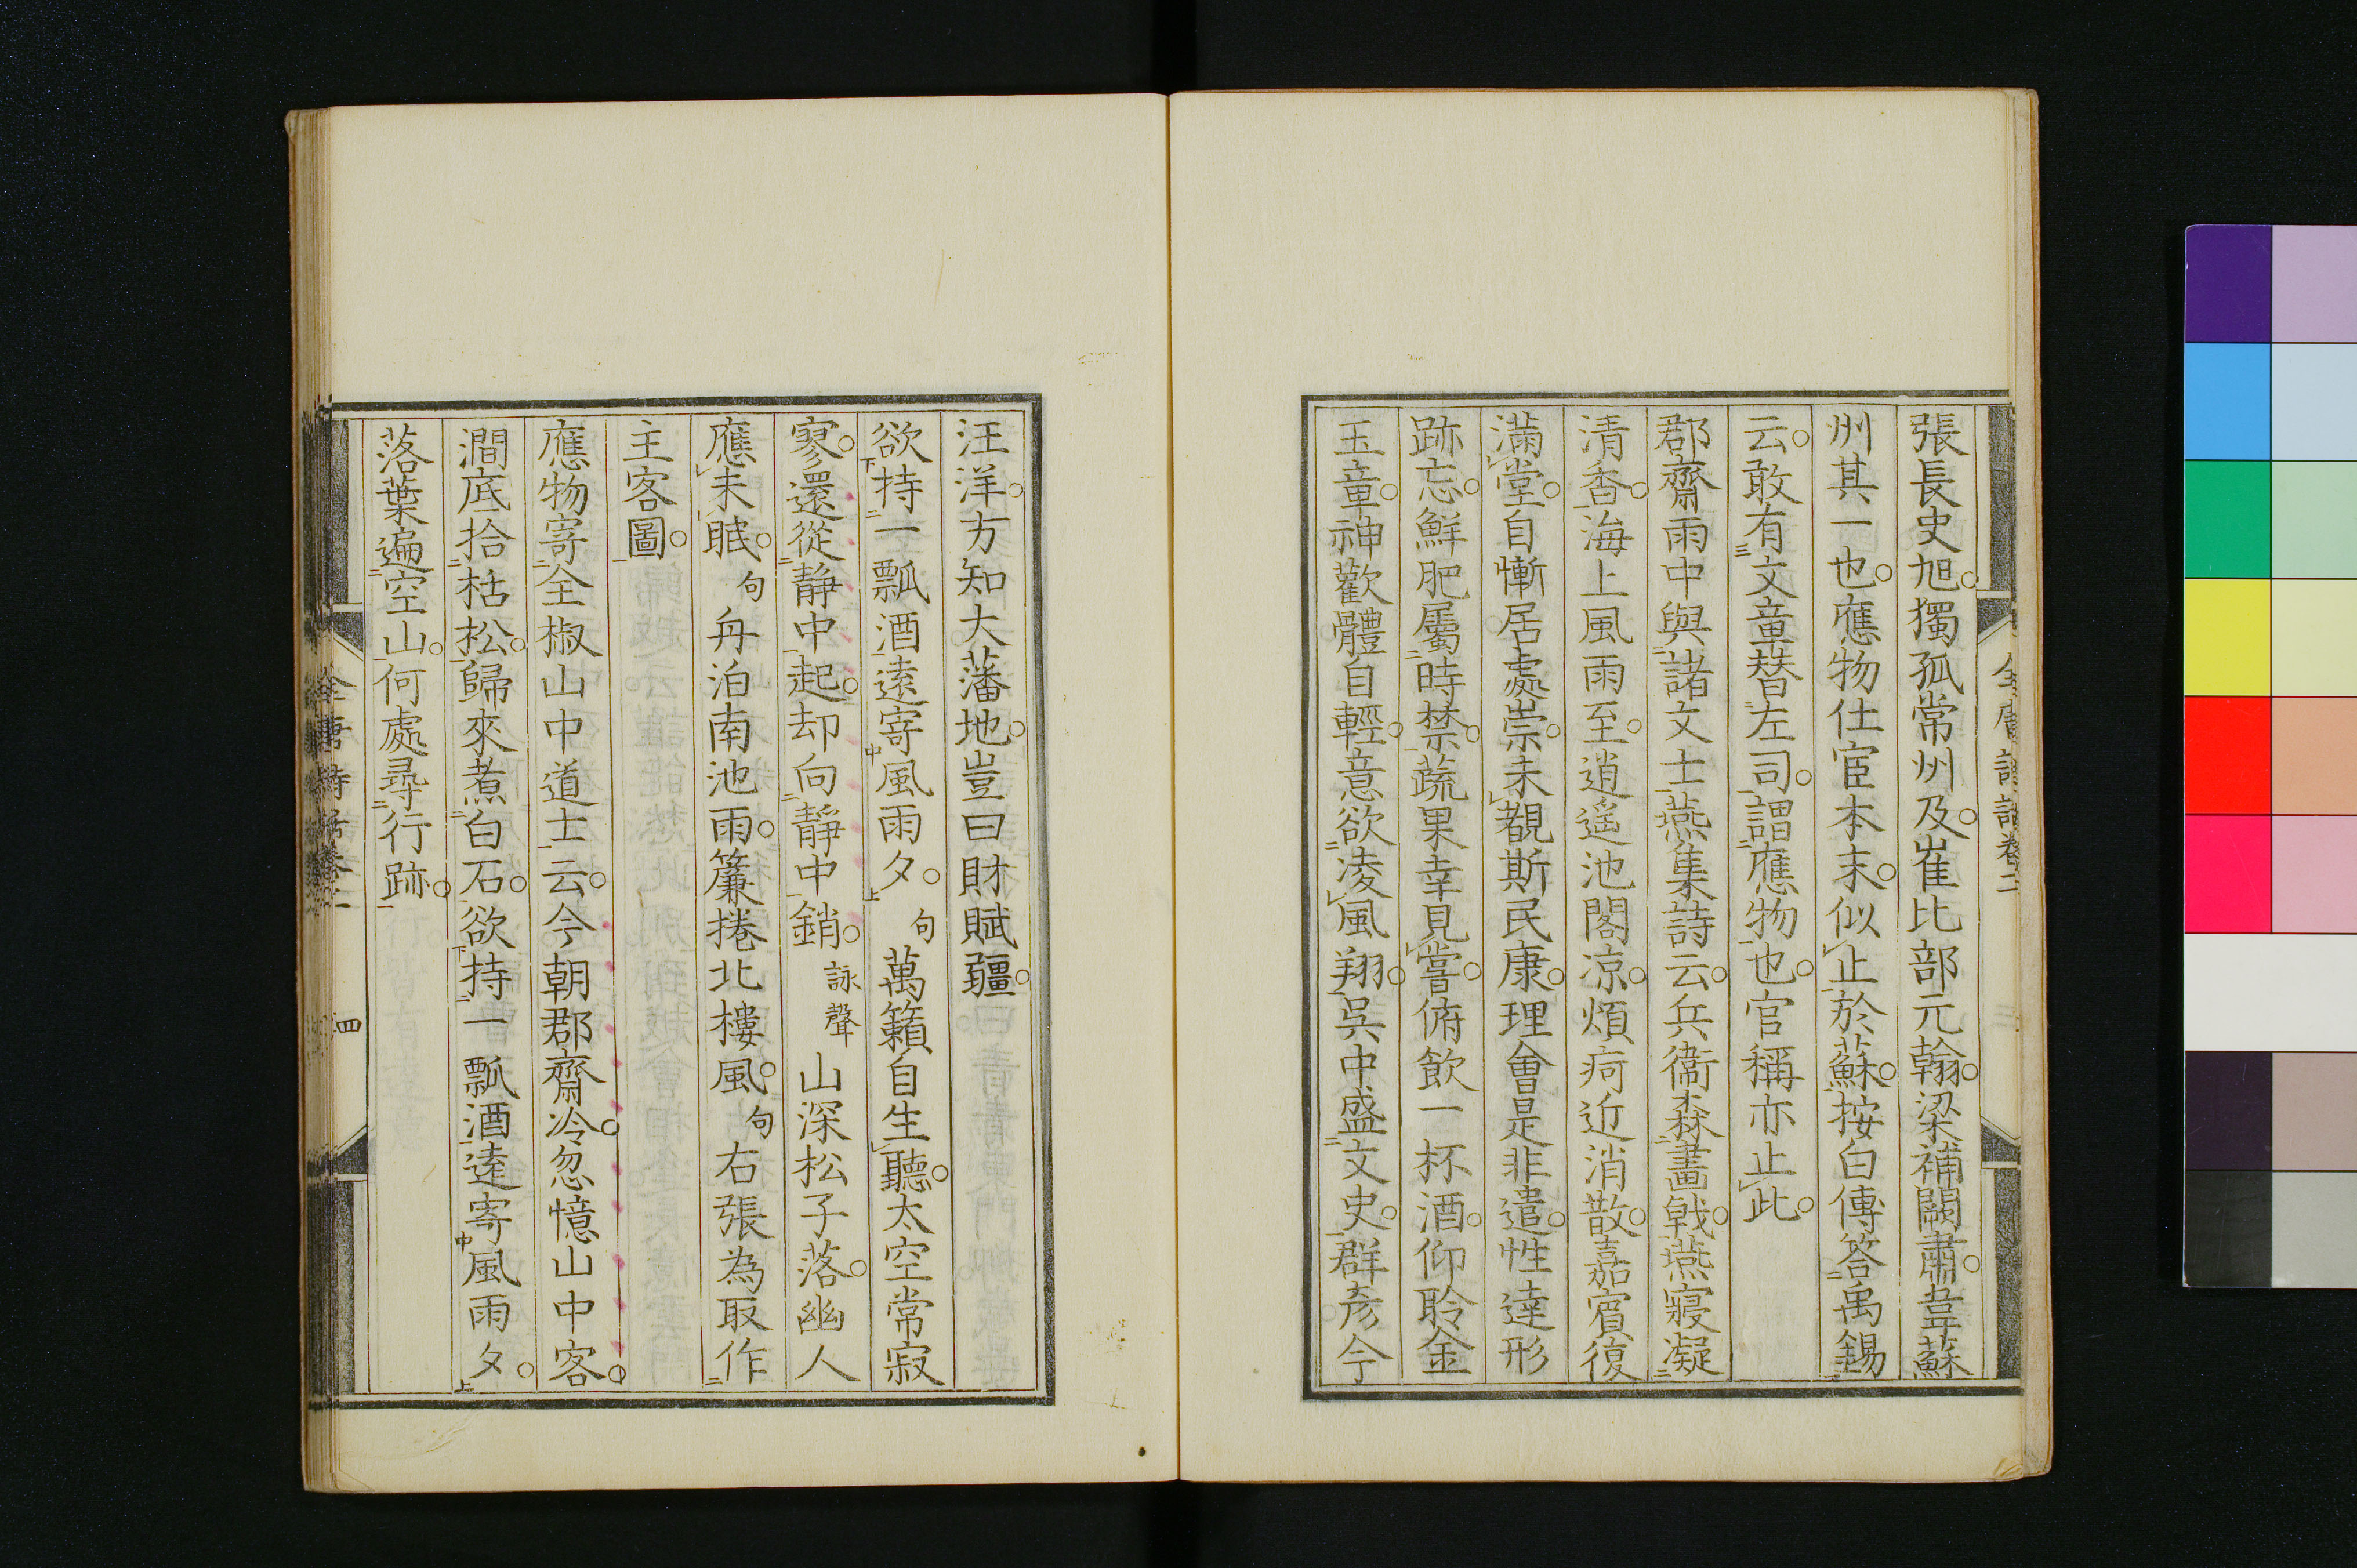 張長史旭獨孤常州及崔比部元翰梁補闕肅韋蘇
州其一也應物仕宦本末似止於蘇按白傳答禹錫
云敢有文章替左司謂應物也官稱亦止此
郡齋雨中與諸文士燕集詩云兵衞森畫戟燕寢凝
清香海上風雨至逍遥池閣涼煩疴近消散嘉賓復
滿堂自慚居處崇未覩斯民康理會是非遣性達形
跡忘鮮肥屬時禁蔬果幸見嘗俯飲一杯酒仰聆金
玉章神歡體自輕意欲凌風翔吳中盛文史群彦今
汪洋方知大藩地豈曰財賦疆
欲持一瓢酒遠寄風雨夕 句 萬籟自生聽太空常寂
寥還從靜中起却向靜中銷 詠聲 山深松子落幽人
應未眠 句 舟泊南池雨簾捲北樓風 句 右張為取作
主客圖
應物寄全椒山中道士云今朝郡齋冷忽憶山中客
澗底拾枯松歸來煮白石欲持一瓢酒逺寄風雨夕
落葉遍空山何處尋行跡
全唐詩話卷二
四